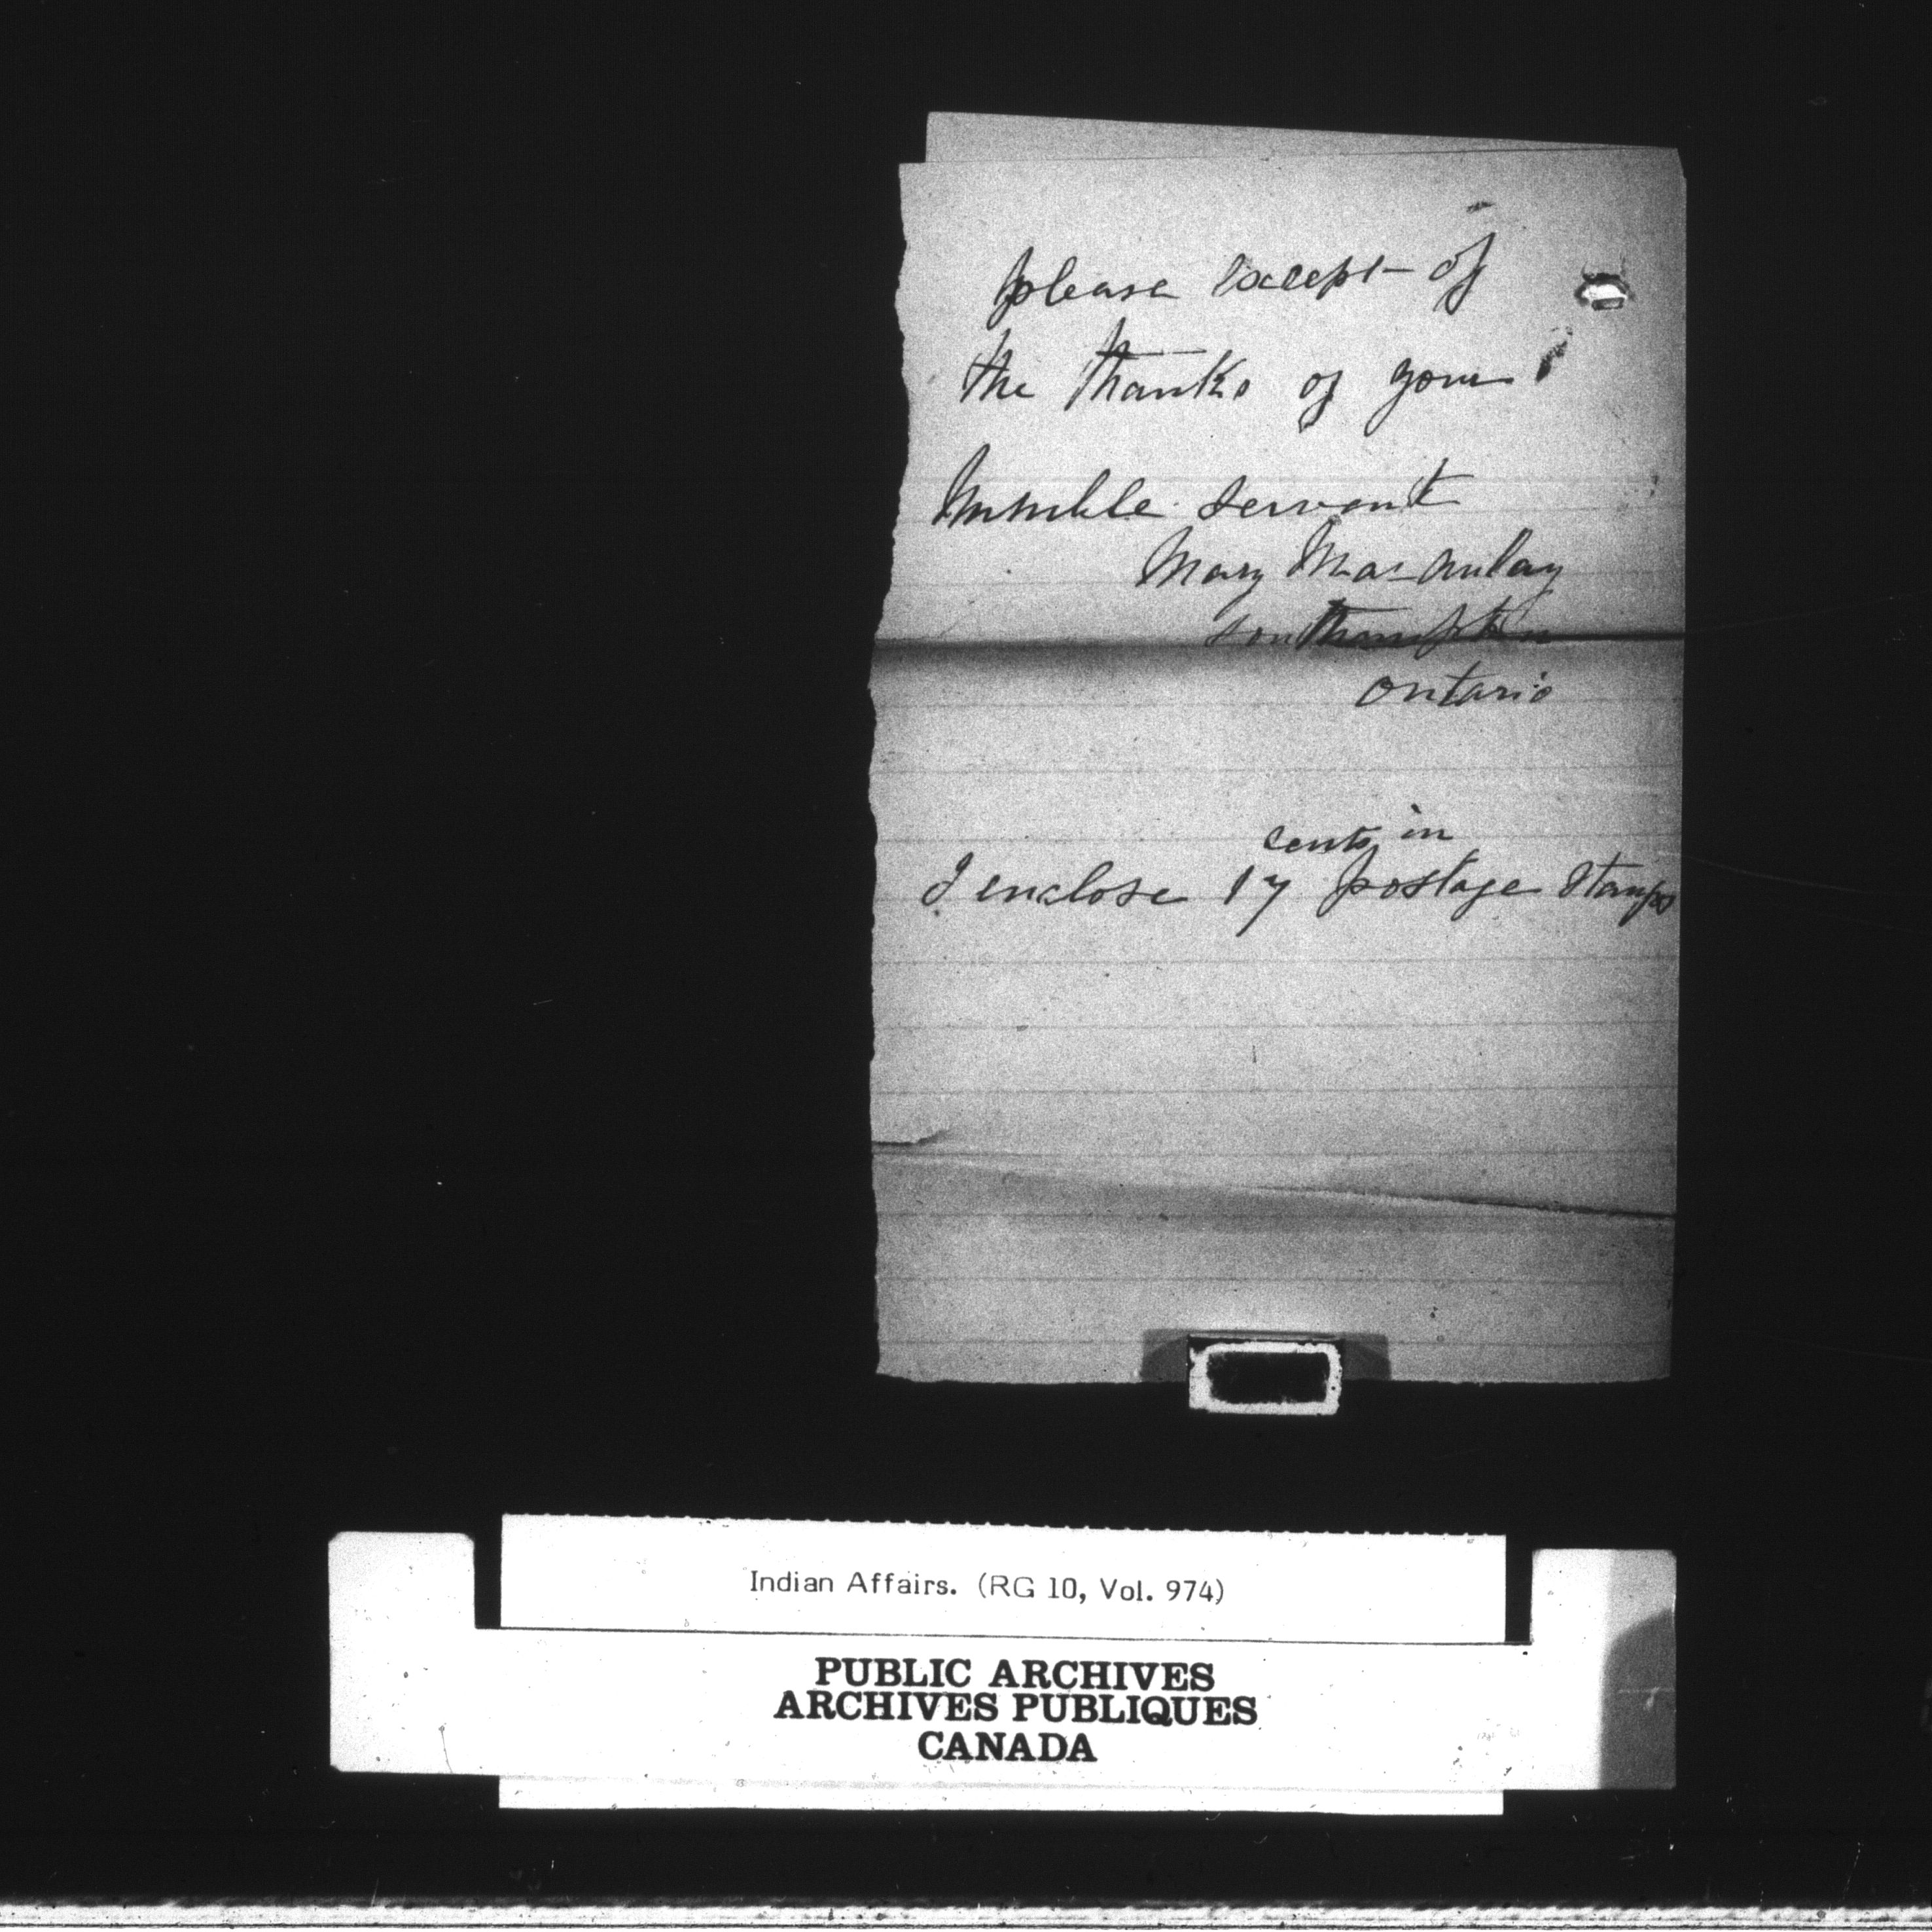 please except of
the thanks of your
humble servant
Mary MacAulay
Southampton
ontario
cents in
I enclose 17 postage Stamps
Indian Affairs. (RG 10, Vol. 974)
PUBLIC ARCHIVES
ARCHIVES PUBLIQUES
CANADA